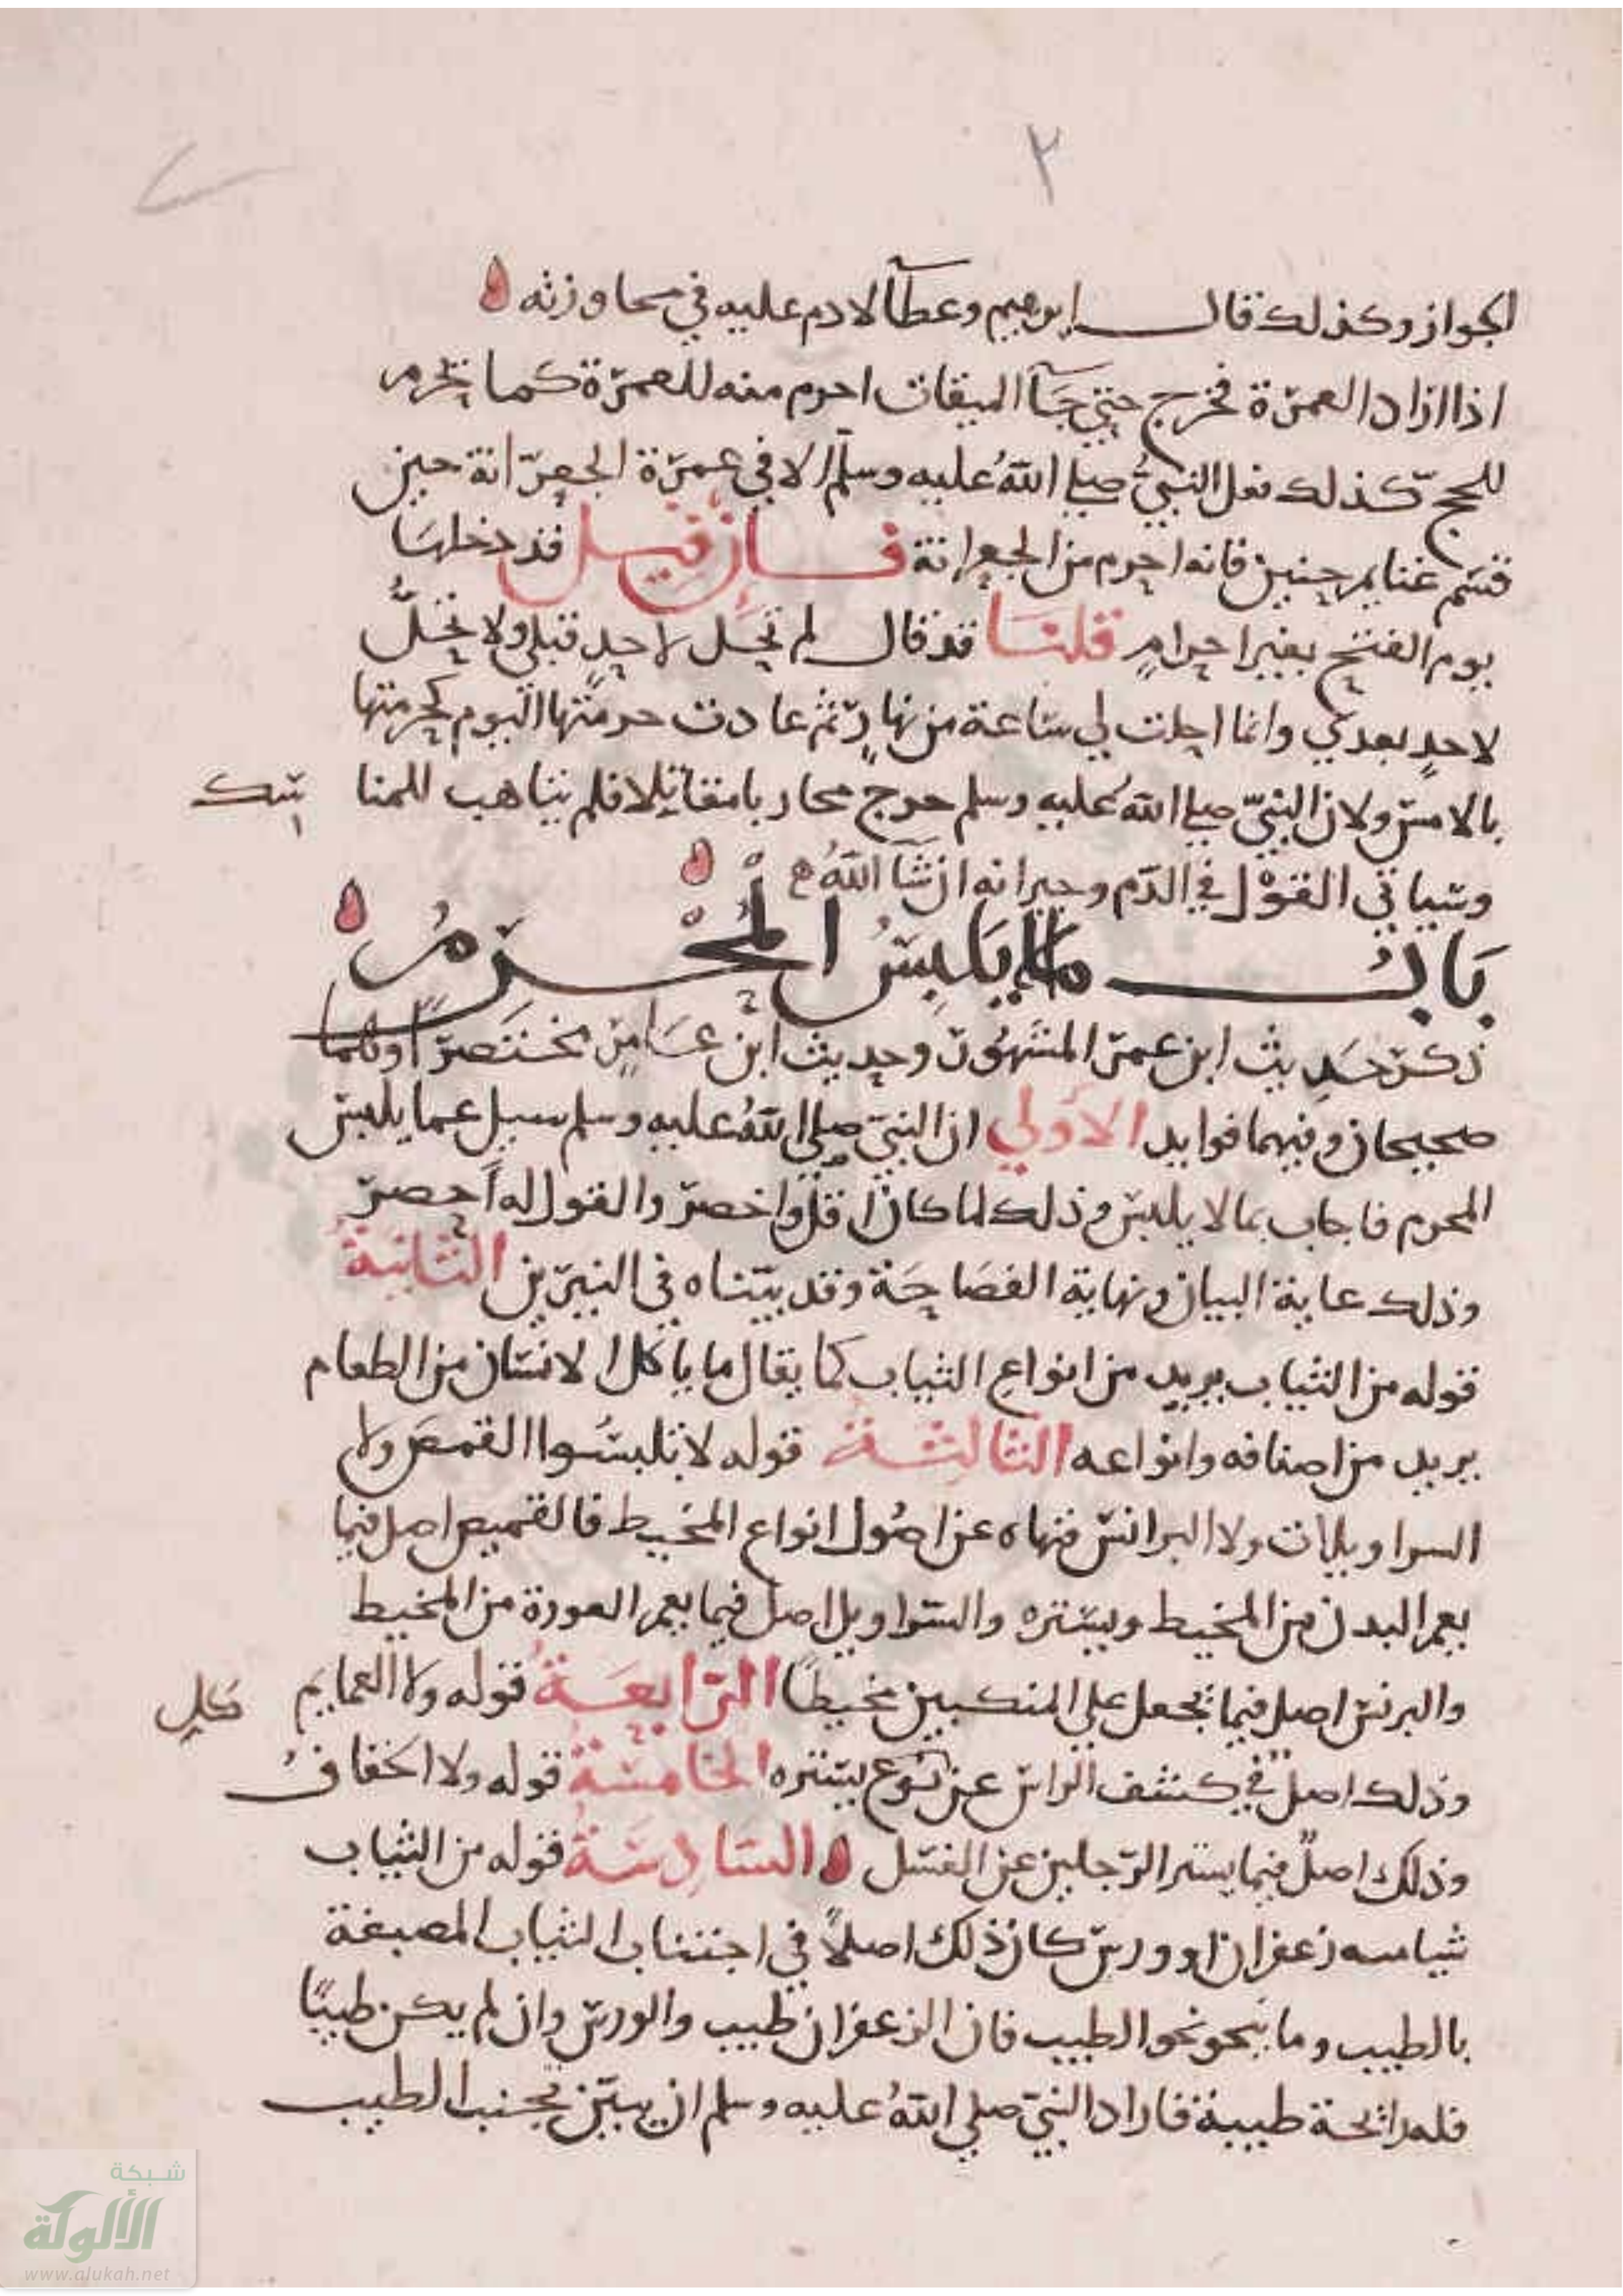 ٢
الجواز وكذلك قال ابرهيم وعطآ لا دم عليه في محاوزته
اذا اراد العمرة فخرج حتي جآ الميقات احرم منه للعمرة كما يحرم
للحج كذلك فعل النبي صلي الله عليه وسلم الا في عمرة الجعرانة حين
قسم غنايم حنين فانه احرم من الجعرانة فان قيل قد دخلها
يوم الفتح بغير احرام قلنا قد قال لم تحل لاحد قبلي ولا تحل
لاحد بعدي وانما احلت لي ساعة من نهار ثم عادت حرمتها اليوم كحرمتها
بالامس ولان النبي صلي الله عليه وسلم خرج محاربا مقاتلا فلم يتاهب للمنا سك
وسياتي القول في الدم وجبرانه ان شآ الله
باب ما يلبس المحرم
ذكر حديث ابن عمر المشهور وحديث ابن عباس مختصرا وكلاهما
صحيحان وفيهما فوايد الاولي ان النبي صلي الله عليه وسلم سيل عما يلبس
المحرم فاجاب بما لا يلبس وذلك لما كان اقل واخصر والقول له احصر
وذلك غاية البيان ونهاية الفصاحة وقد بيناه في النيرين الثانية
قوله من الثياب يريد من انواع الثياب كما يقال ما ياكل الانسان من الطعام
يريد من اصنافه وانواعه الثالثة قوله لا تلبسوا القمص ولا
السراويلات ولا البرانس فنهاه عن اصول انواع المخيط فالقميص اصل فيما
يعم البدن من المخيط ويستره والسراويل اصل فيما يعم العورة من المخيط
والبرنس اصل فيما يجعل علي المنكبين مخيطا الرابعة قوله ولا العمايم
وذلك اصل في كشف الراس عن كل نوع يستره الخامسة قوله ولا الخفاف
وذلك اصل فيما يستر الرجلين عن الغسل السادسة قوله من الثياب
شيا مسه زعفران او ورس كان ذلك اصلا في اجتناب الثياب المصبغة
بالطيب وما ينحو نحو الطيب فان الزعفران طيب والورس وان لم يكن طيبا
فله رائحة طيبة فاراد النبي صلي الله عليه وسلم ان يبين تجنب الطيب
شبكة
الألوكة
www.alukah.net